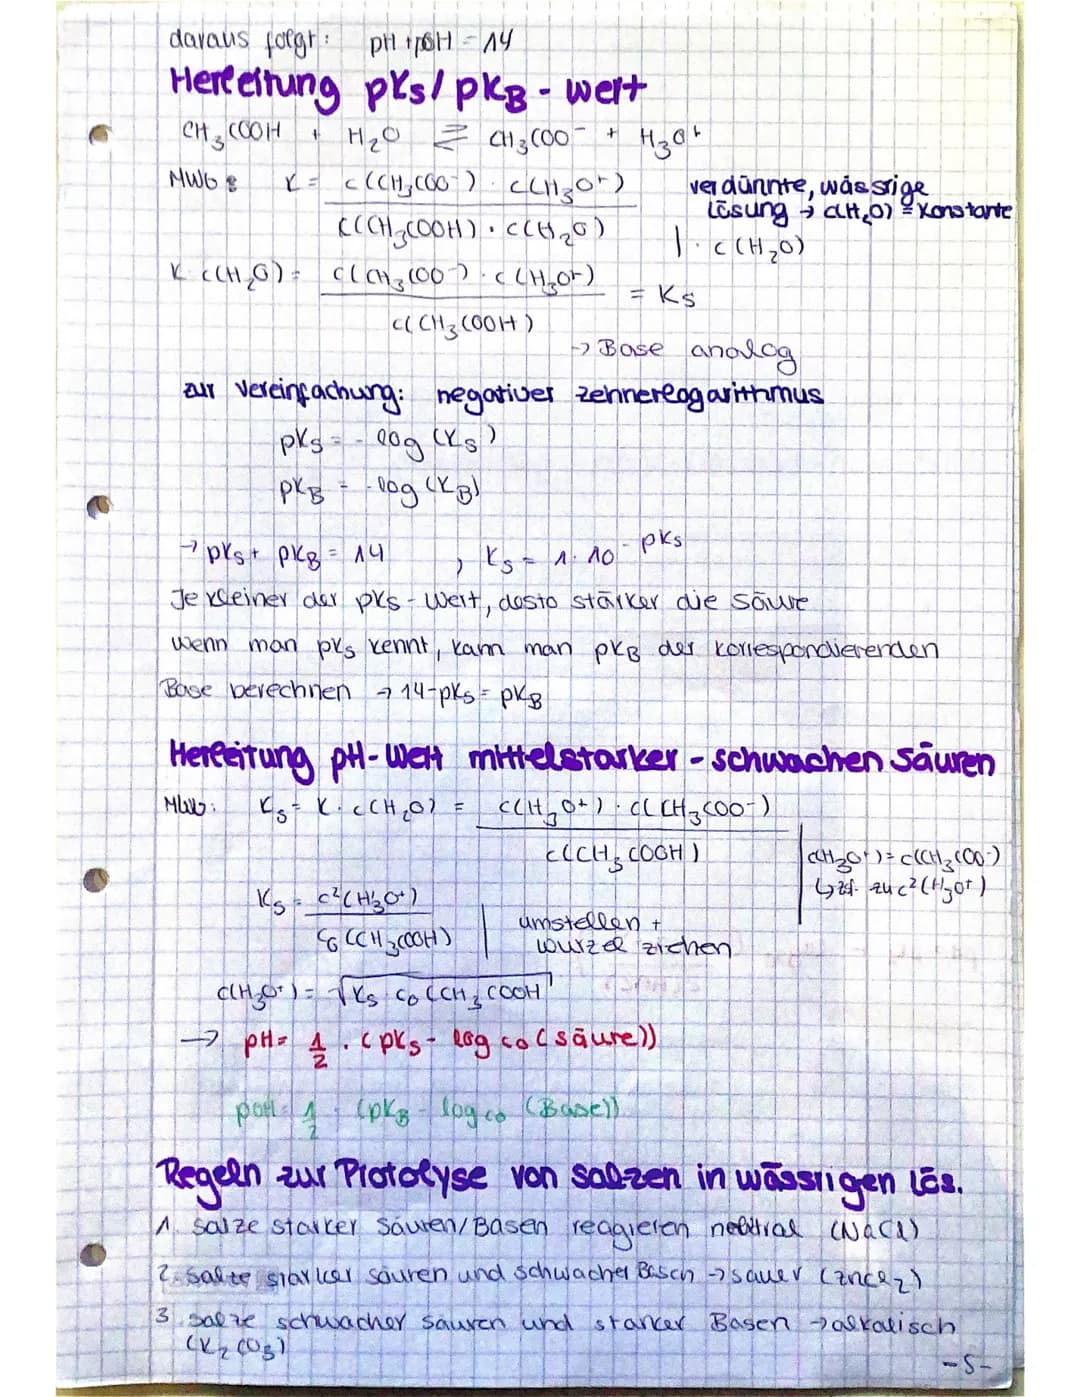 daraus folgt: pH + pOH = 14
Herleitung pKs/pKB-wert
CH3COOH + H2O ⇌ CH3COO⁻ + H3O⁺
MWG: K = c(CH3COO⁻) · c(H3O⁺) / c(CH3COOH) · c(H2O)
verdünnte, wässrige
Lösung → c(H2O) = Konstante
| · c(H2O)
K · c(H2O) = c(CH3COO⁻) · c(H3O⁺) / c(CH3COOH) = Ks
→ Base analog
zur Vereinfachung: negativer zehnerlogarithmus
pKs = - log (Ks)
pKB = - log (KB)
→ pKs + pKB = 14 , Ks = 1 · 10^-pKs
Je kleiner der pKs-Wert, desto stärker die Säure
wenn man pKs kennt, kann man pKB der korrespondierenden
Base berechnen → 14-pKs = pKB
Herleitung pH-Wert mittelstarker - schwachen Säuren
MWG: Ks = K · c(H2O) = c(H3O⁺) · c(CH3COO⁻) / c(CH3COOH)
c(H3O⁺) = c(CH3COO⁻)
↳ zf. zu c²(H3O⁺)
Ks = c²(H3O⁺) / c0(CH3COOH) | umstellen +
wurzel ziehen
c(H3O⁺) = √Ks · c0(CH3COOH
→ pH = 1/2 · (pKs - log c0 (säure))
pOH = 1/2 · (pKB - log c0 (Base))
Regeln zur Protolyse von salzen in wässrigen Lös.
1. salze starker Säuren/Basen reagieren neutral (NaCl)
2. salze starker säuren und schwacher Basen → sauer (ZnCl2)
3. salze schwacher säuren und starker Basen → alkalisch
(K2CO3)
-5-